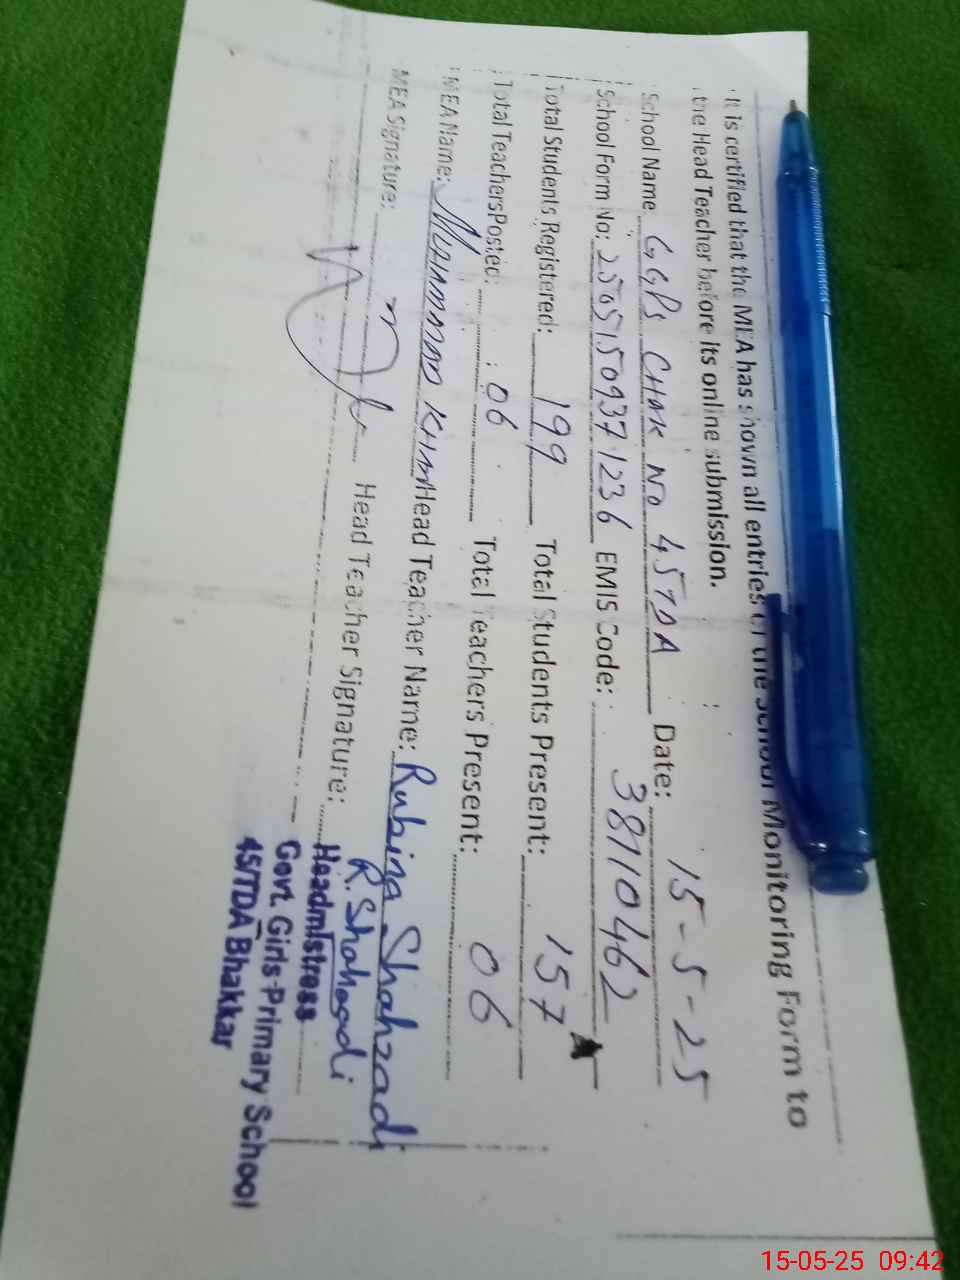 It is certified that the MEA has shown all entries of the School Monitoring Form to
the Head Teacher before its online submission.
School Name GGPS CHAK NO 45TDA Date: 15-5-25
School Form No: 25051509371236 EMIS Code: 38710462
Total Students Registered: 199 Total Students Present: 157
Total Teachers Posted: 06 Total Teachers Present: 06
MEA Name: MUHAMMAD KHAN Head Teacher Name: Rubina Shahzadi
MEA Signature: Head Teacher Signature: R. Shahzadi
Headmistress
Govt. Girls Primary School
45/TDA Bhakkar
15-05-25 09:42